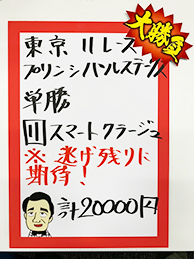 大勝負
東京 11レース
プリンシパルステークス
単勝
11 スマートクラージュ
※ 逃げ残りに
期待！
計20000円